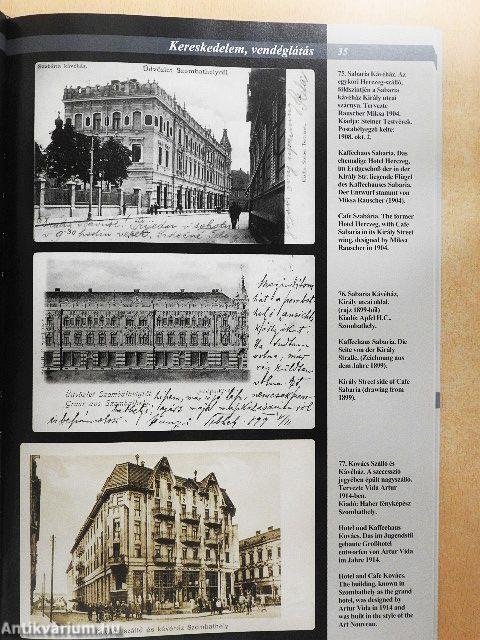 Kereskedelem, vendéglátás 35
Szabária kávéház.
Üdvözlet Szombathelyről
75. Sabaria Kávéház. Az
egykori Herczeg-szálló,
földszintjén a Sabaria
kávéház Király utcai
szárnya. Tervezte
Rauscher Miksa 1904.
Kiadja: Steiner Testvérek.
Postabélyegző kelte:
1908. okt. 2.
Kaffeehaus Sabaria. Das
ehemalige Hotel Herczeg,
im Erdgeschoß der in der
Király Str. liegende Flügel
des Kaffeehauses Sabaria.
Der Entwurf stammt von
Miksa Rauscher (1904).
Cafe Szabária. The former
Hotel Herczeg, with Cafe
Sabaria in its Király Street
wing, designed by Miksa
Rauscher in 1904.
76. Sabaria Kávéház,
Király utcai oldal.
(rajz 1899-ből)
Kiadó: Apfel H.C.,
Szombathely.
Kaffeehaus Sabaria. Die
Seite von der Király
Straße. (Zeichnung aus
dem Jahre 1899).
Király Street side of Cafe
Sabaria (drawing from
1899).
Üdvözlet Szombathelyről
Gruss aus Szombathely
77. Kovács Szálló és
Kávéház. A szecesszió
jegyében épült nagyszálló.
Tervezte Vida Artur
1914-ben.
Kiadó: Haber fényképész
Szombathely.
Hotel und Kaffeehaus
Kovács. Das im Jugendstil
gebaute Großhotel
entworfen von Artur Vida
im Jahre 1914.
Hotel and Cafe Kovács.
The building, known in
Szombathely as the grand
hotel, was designed by
Artur Vida in 1914 and
was built in the style of the
Art Nouveau.
szálló és kávéház Szombathely
Antikvárium.hu